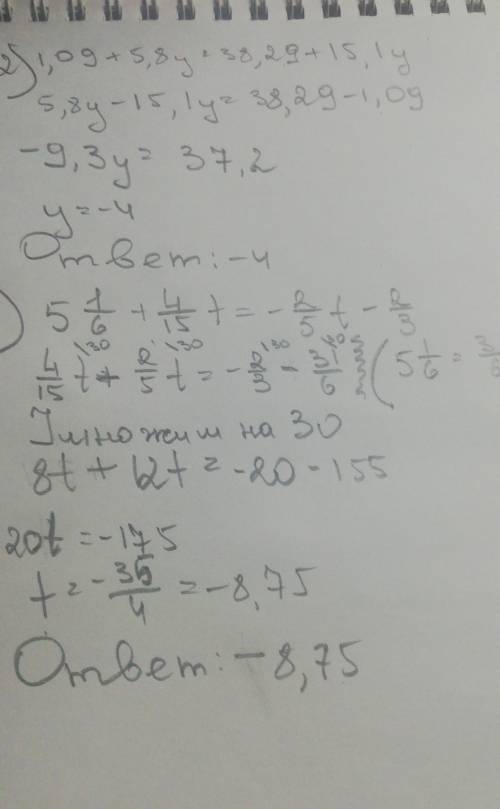 2) 1,09+5,8y=38,29+15,1y
5,8y-15,1y=38,29-1,09
-9,3y= 37,2
y=-4
Ответ:-4
) 5 1/6 + 4/15 t = - 2/5 t - 2/3
4/15 t\30 + 2/5 t\30 = - 2/3\30 - 31/6\30 (5 1/6 = 31/6
Умножим на 30
8t + 12t = -20 - 155
20t = -175
t = - 35/4 = -8,75
Ответ: -8,75